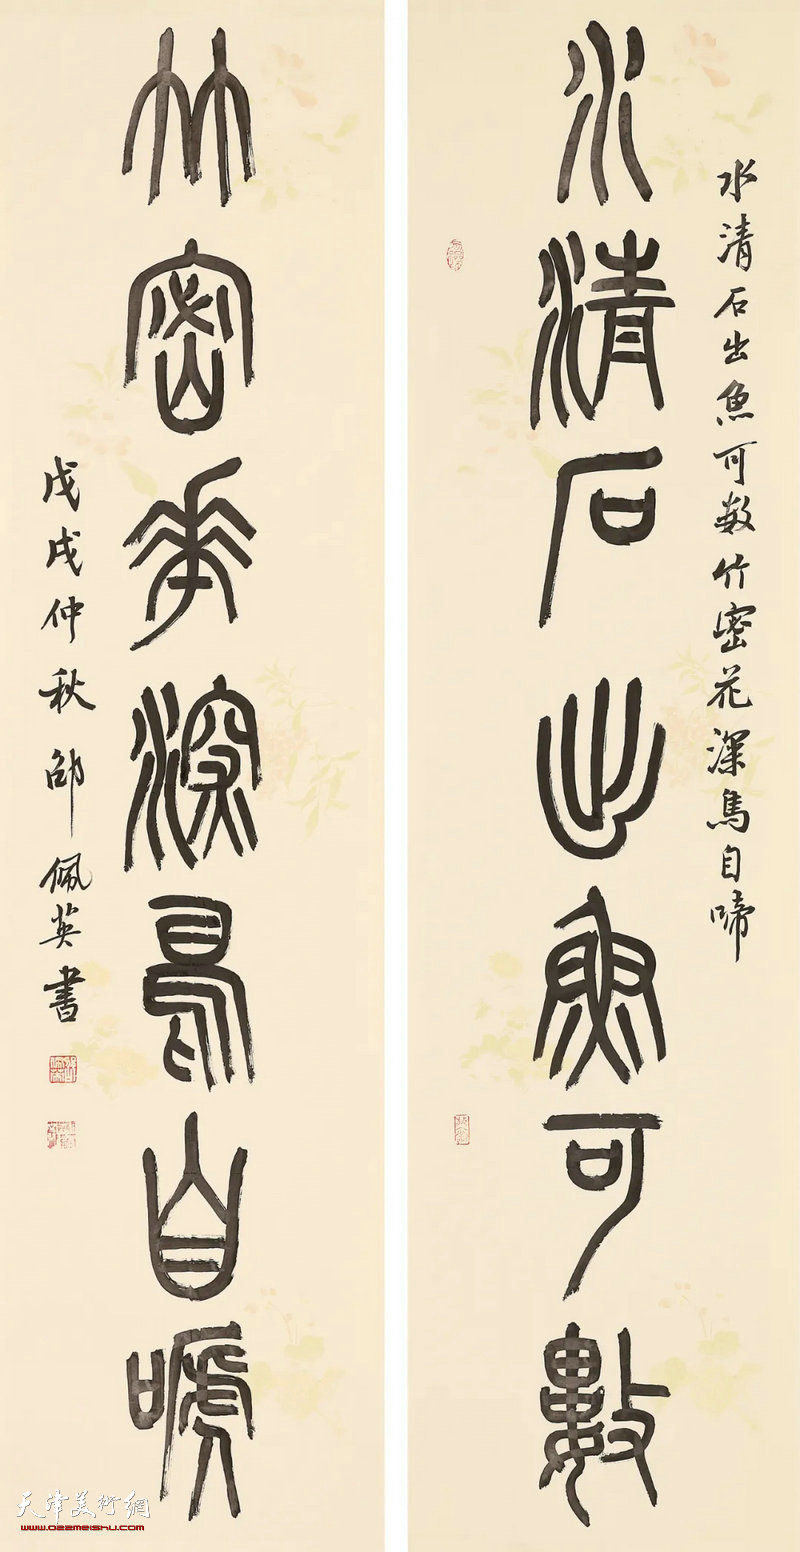 水清石出魚可数竹密花深鳥自啼
水清石出魚可數
竹密華深鳥自嗁
戊戌仲秋邵佩英書
天津美術網
www.022meishu.com